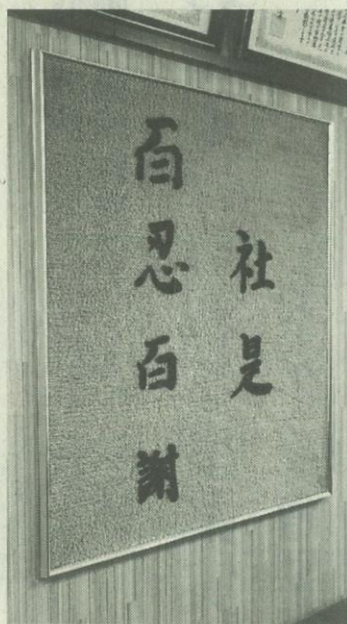 社是
百忍百謝